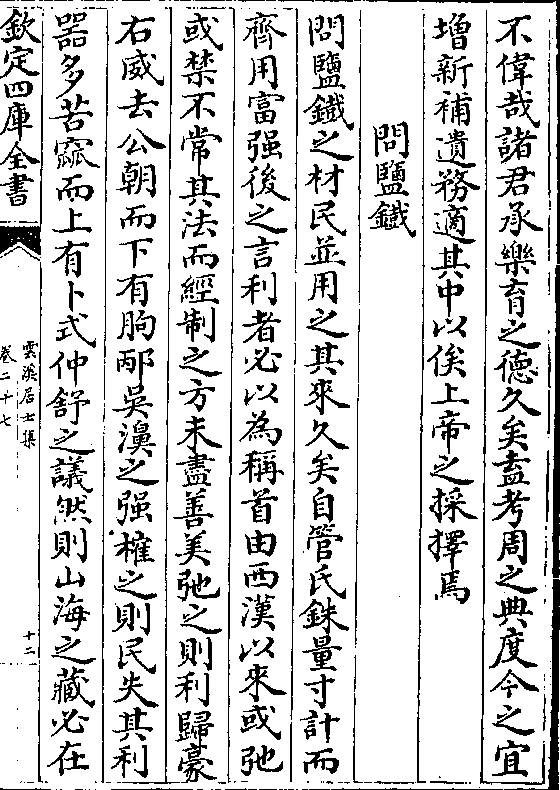 不偉哉諸君承樂育之德久矣盍考周之典度今之宜
増新補遺務適其中以俟上帝之採擇焉
問鹽鐵
問鹽鐵之材民並用之其來久矣自管氏銖量寸計而
齊用富强後之言利者必以為稱首由西漢以來或弛
或禁不常其法而經制之方未盡善美弛之則利歸豪
右威去公朝而下有朐邴吳濞之强榷之則民失其利
器多苦窳而上有卜式仲舒之議然則山海之藏必在
欽定四庫全書
雲溪居士集
卷二十七
十二